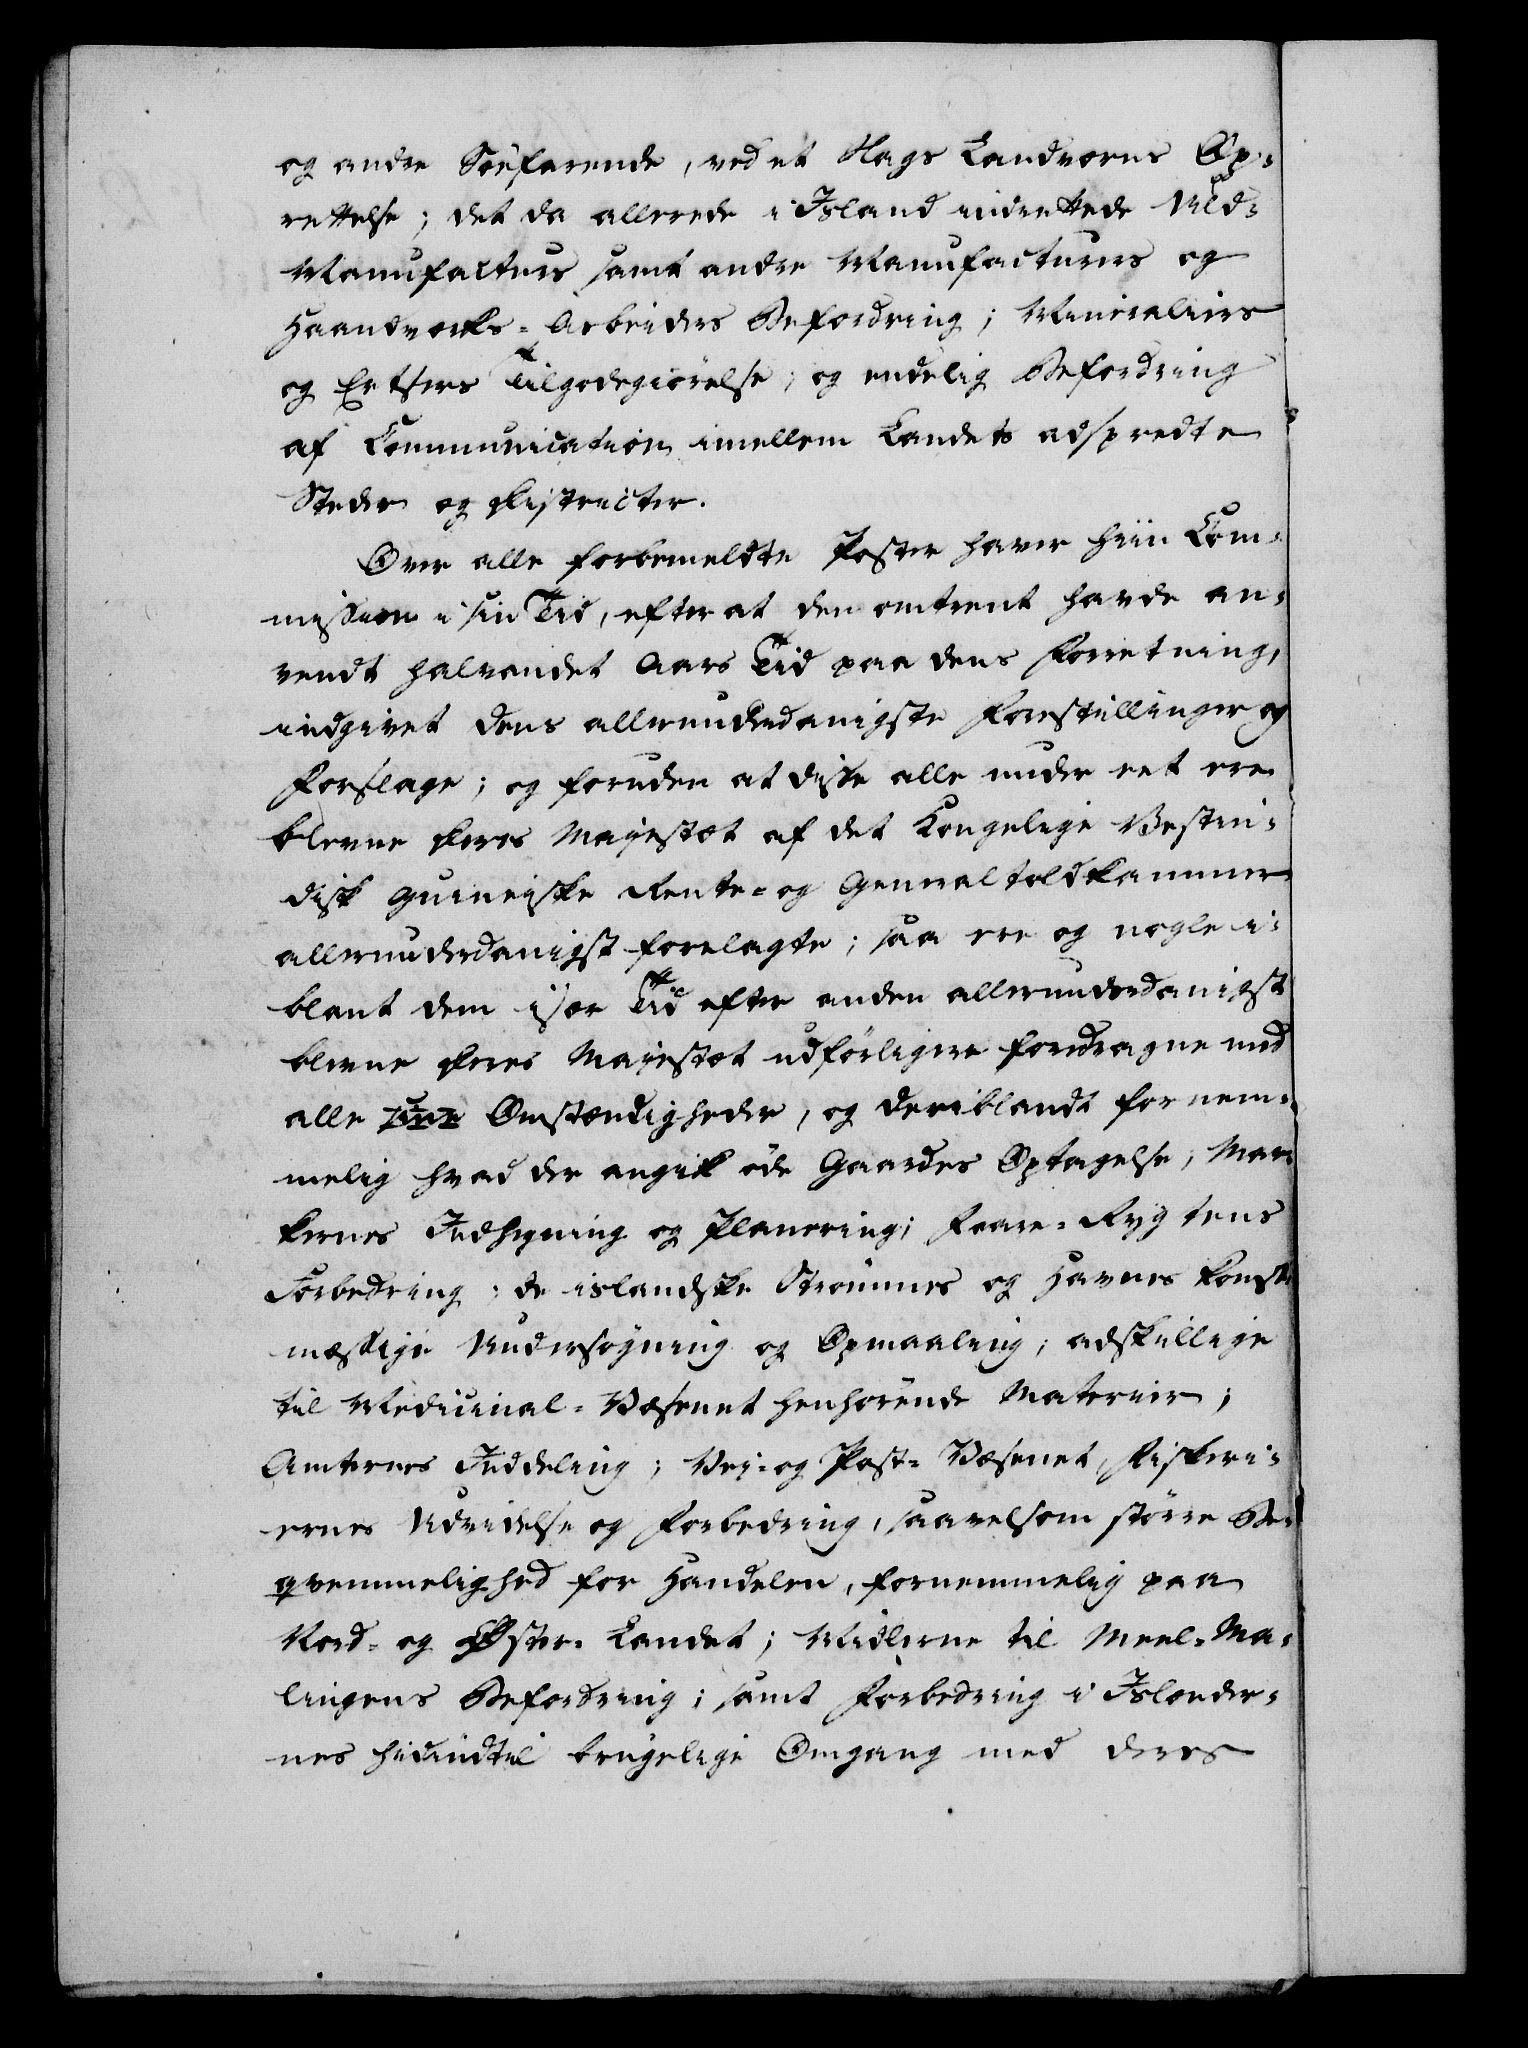 og andre Söefarende, ved et Slags Landværns Op-
rettelse; det da allerede i Island indrettede Uld-
Manufacturs samt andre Manufacturers og
Haandværks-Arbeiders Befordring; Mineraliers
og Ertsers Tilgodegiörelse; og endelig Befordring
af Communication imellem Landets adspredte
Steder og Districter.
Over alle forbemeldte Poster haver hiin Com-
mission i sin Tid, efter at den omtrent havde an-
vendt halvandet Aars Tid paa dens Forretning,
indgivet dens allerunderdanigste Forestillinger og
Forslage; og foruden at disse alle under eet ere
blevne Deres Majestæt af det Kongelige Vestin-
disk guineiske Rente- og General toldkammer
allerunderdanigst forelagte; saa ere og nogle i-
blant dem især Tid efter anden allerunderdanigst
blevne Deres Majestæt udförligere foredragne med
alle Omstændigheder, og deriblandt fornem-
melig hvad der angik öde Gaardes Optagelse, Mar-
kernes Indhegning og Planering; Faare-Rygtens
Forbedring; de islandske Strömmes og Havnes konst-
mæssige Undersögning og Opmaaling; adskillige
til Medicinal-Væsenet henhörende Materier;
Amternes Inddeling; Vei- og Post-Væsenet, Fiskeri-
ernes Udvidelse og Forbedring, saavelsom större Be-
qvemmelighed for Handelen, fornemmelig paa
Nord- og Öster-Landet; Midlerne til Meel-Ma-
lingens Befordring; samt Forbedring i Islænder-
nes hidindtil brugelige Omgang med deres